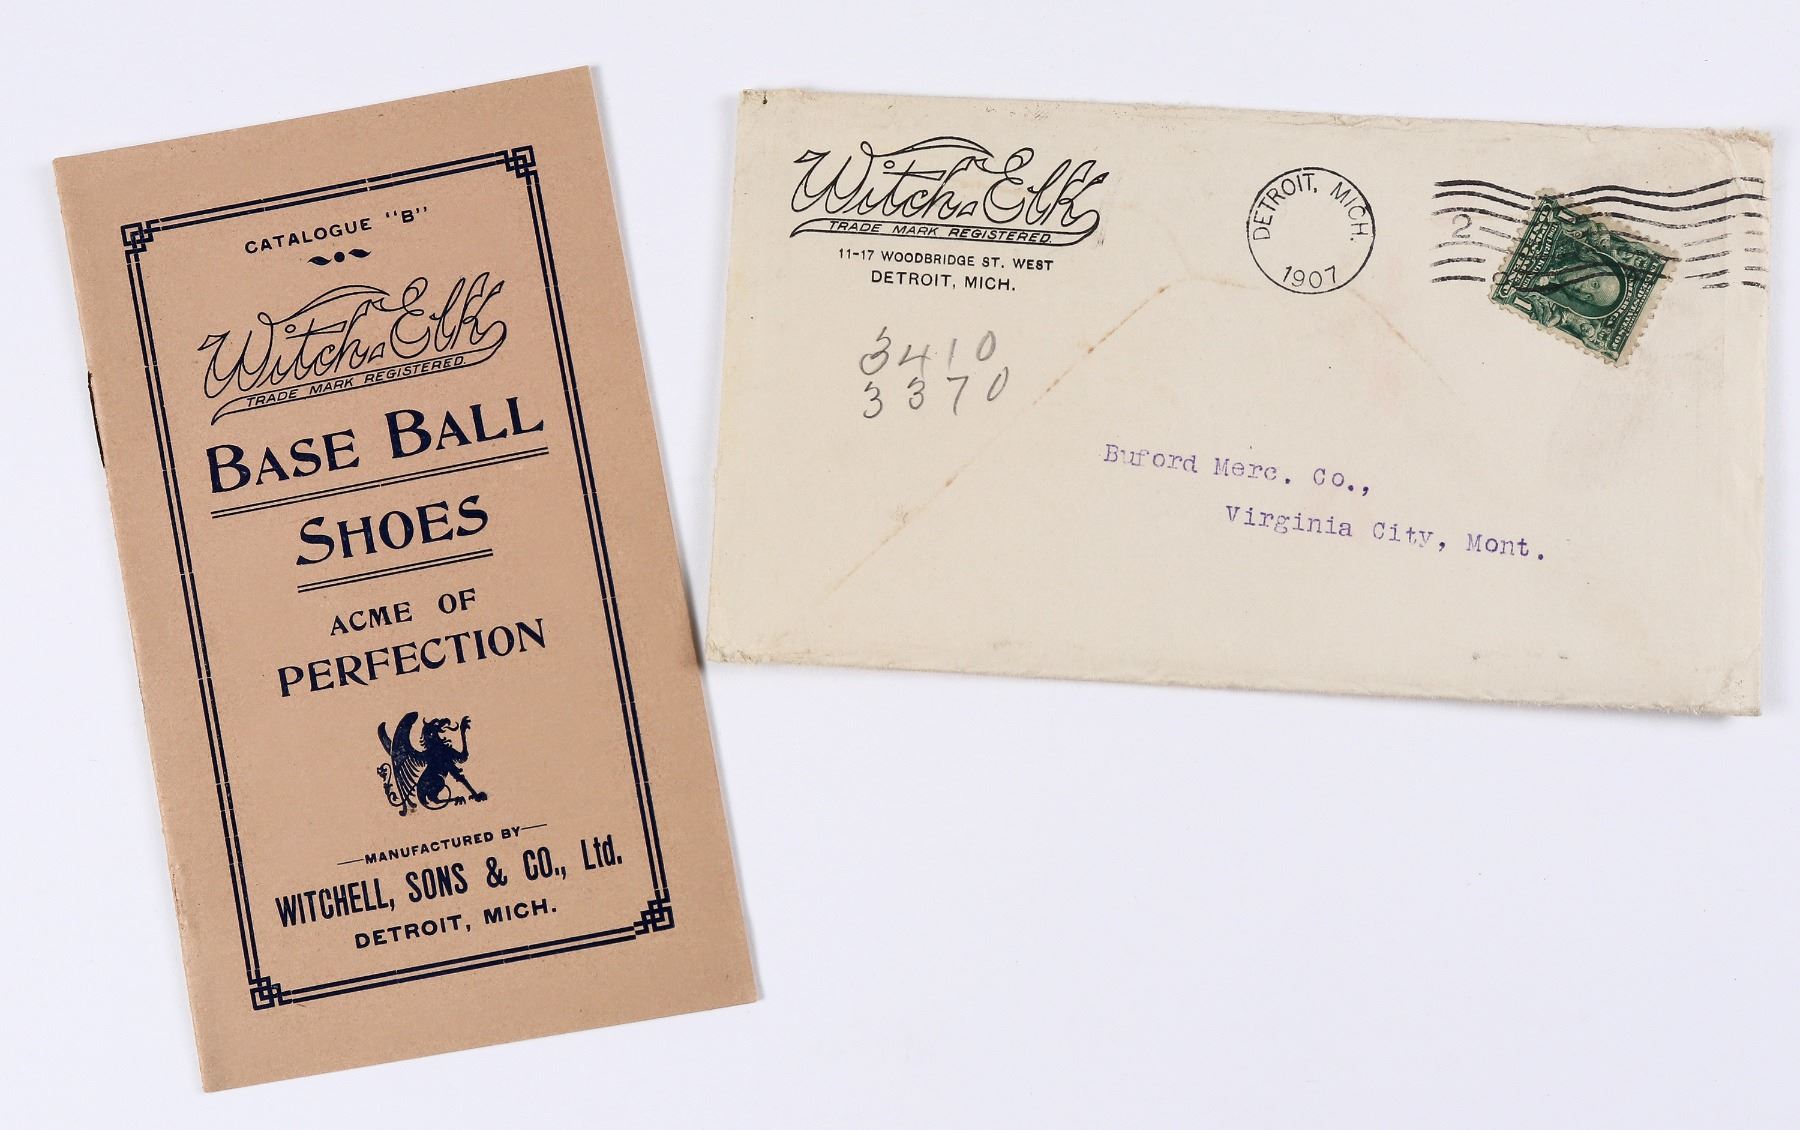 CATALOGUE "B"
Witch-Elk
TRADE MARK REGISTERED.
BASE BALL
SHOES
ACME OF
PERFECTION
—MANUFACTURED BY—
WITCHELL, SONS & CO., Ltd.
DETROIT, MICH.
Witch-Elk
TRADE MARK REGISTERED.
11-17 WOODBRIDGE ST. WEST
DETROIT, MICH.
DETROIT, MICH.
1907
2
3410
3370
Buford Merc. Co.,
Virginia City, Mont.